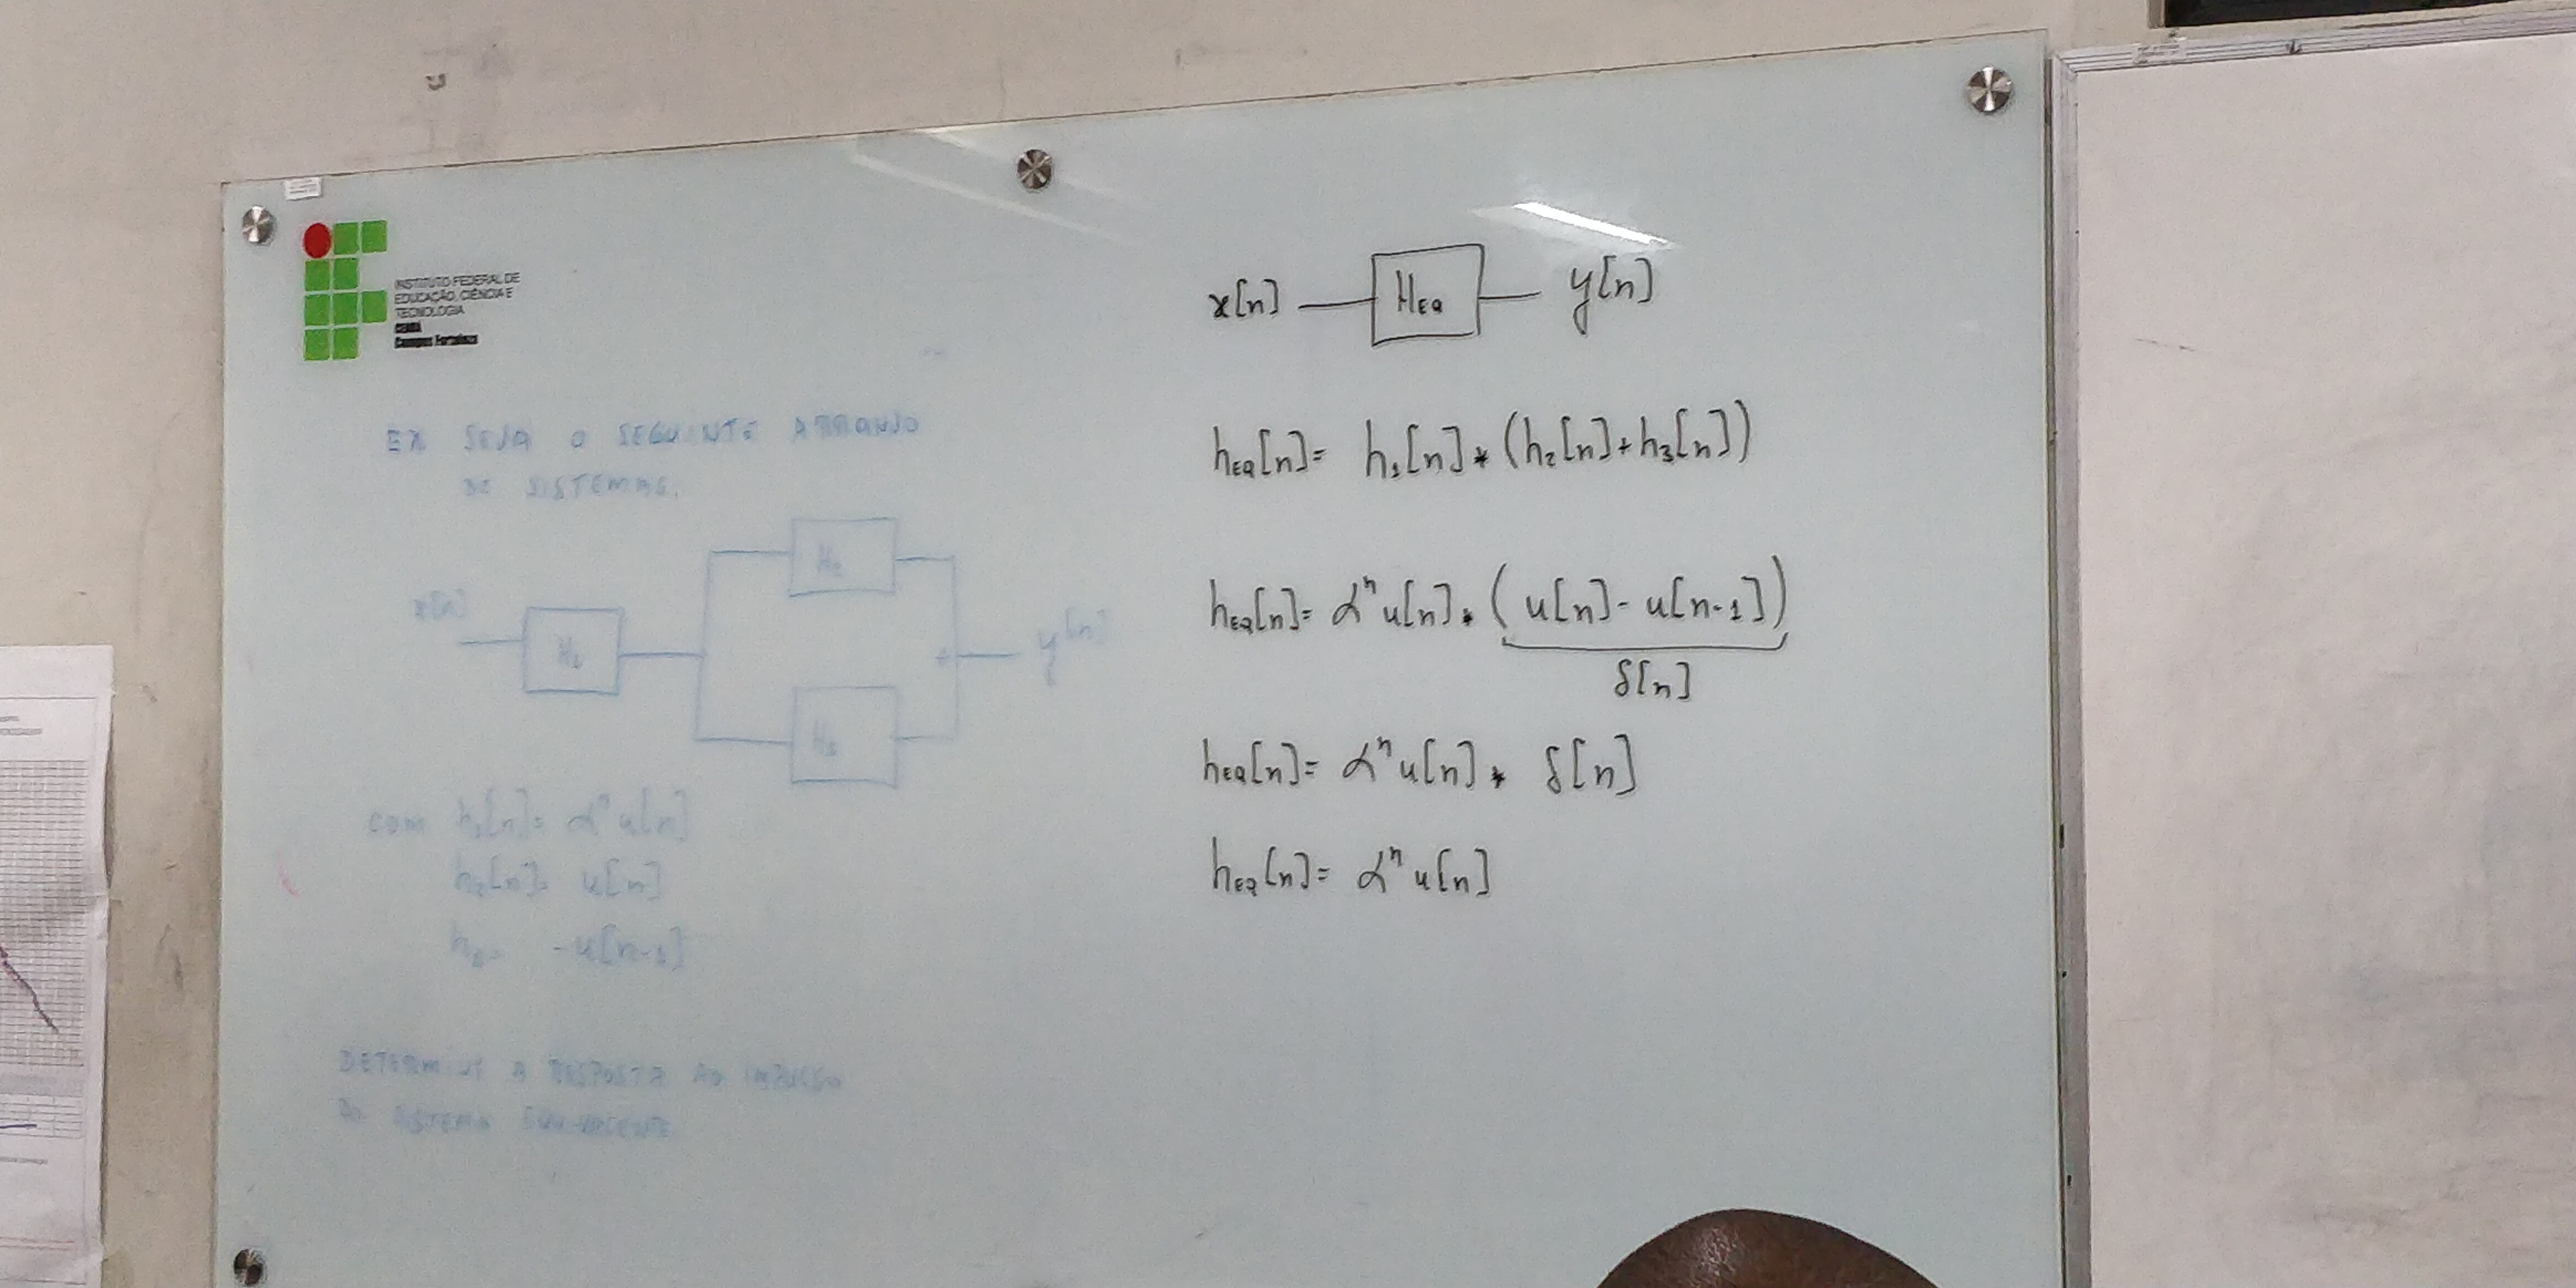 INSTITUTO FEDERAL DE
EDUCAÇÃO, CIÊNCIA E
TECNOLOGIA
CEARÁ
Campus Fortaleza
EX SEJA O SEGUINTE ARRANJO
DE SISTEMAS.
x[n]
H₁
H₂
H₃
+
y[n]
com h₁[n]= αⁿ u[n]
h₂[n]= u[n]
-u[n-1]
DETERMINE A RESPOSTA AO IMPULSO
DO SISTEMA EQUIVALENTE
x[n] HEQ y[n]
hEQ[n]= h₁[n]*(h₂[n]+h₃[n])
hEQ[n]= αⁿu[n]*(u[n]-u[n-1])
δ[n]
hEQ[n]= αⁿu[n]* δ[n]
hEQ[n]= αⁿu[n]